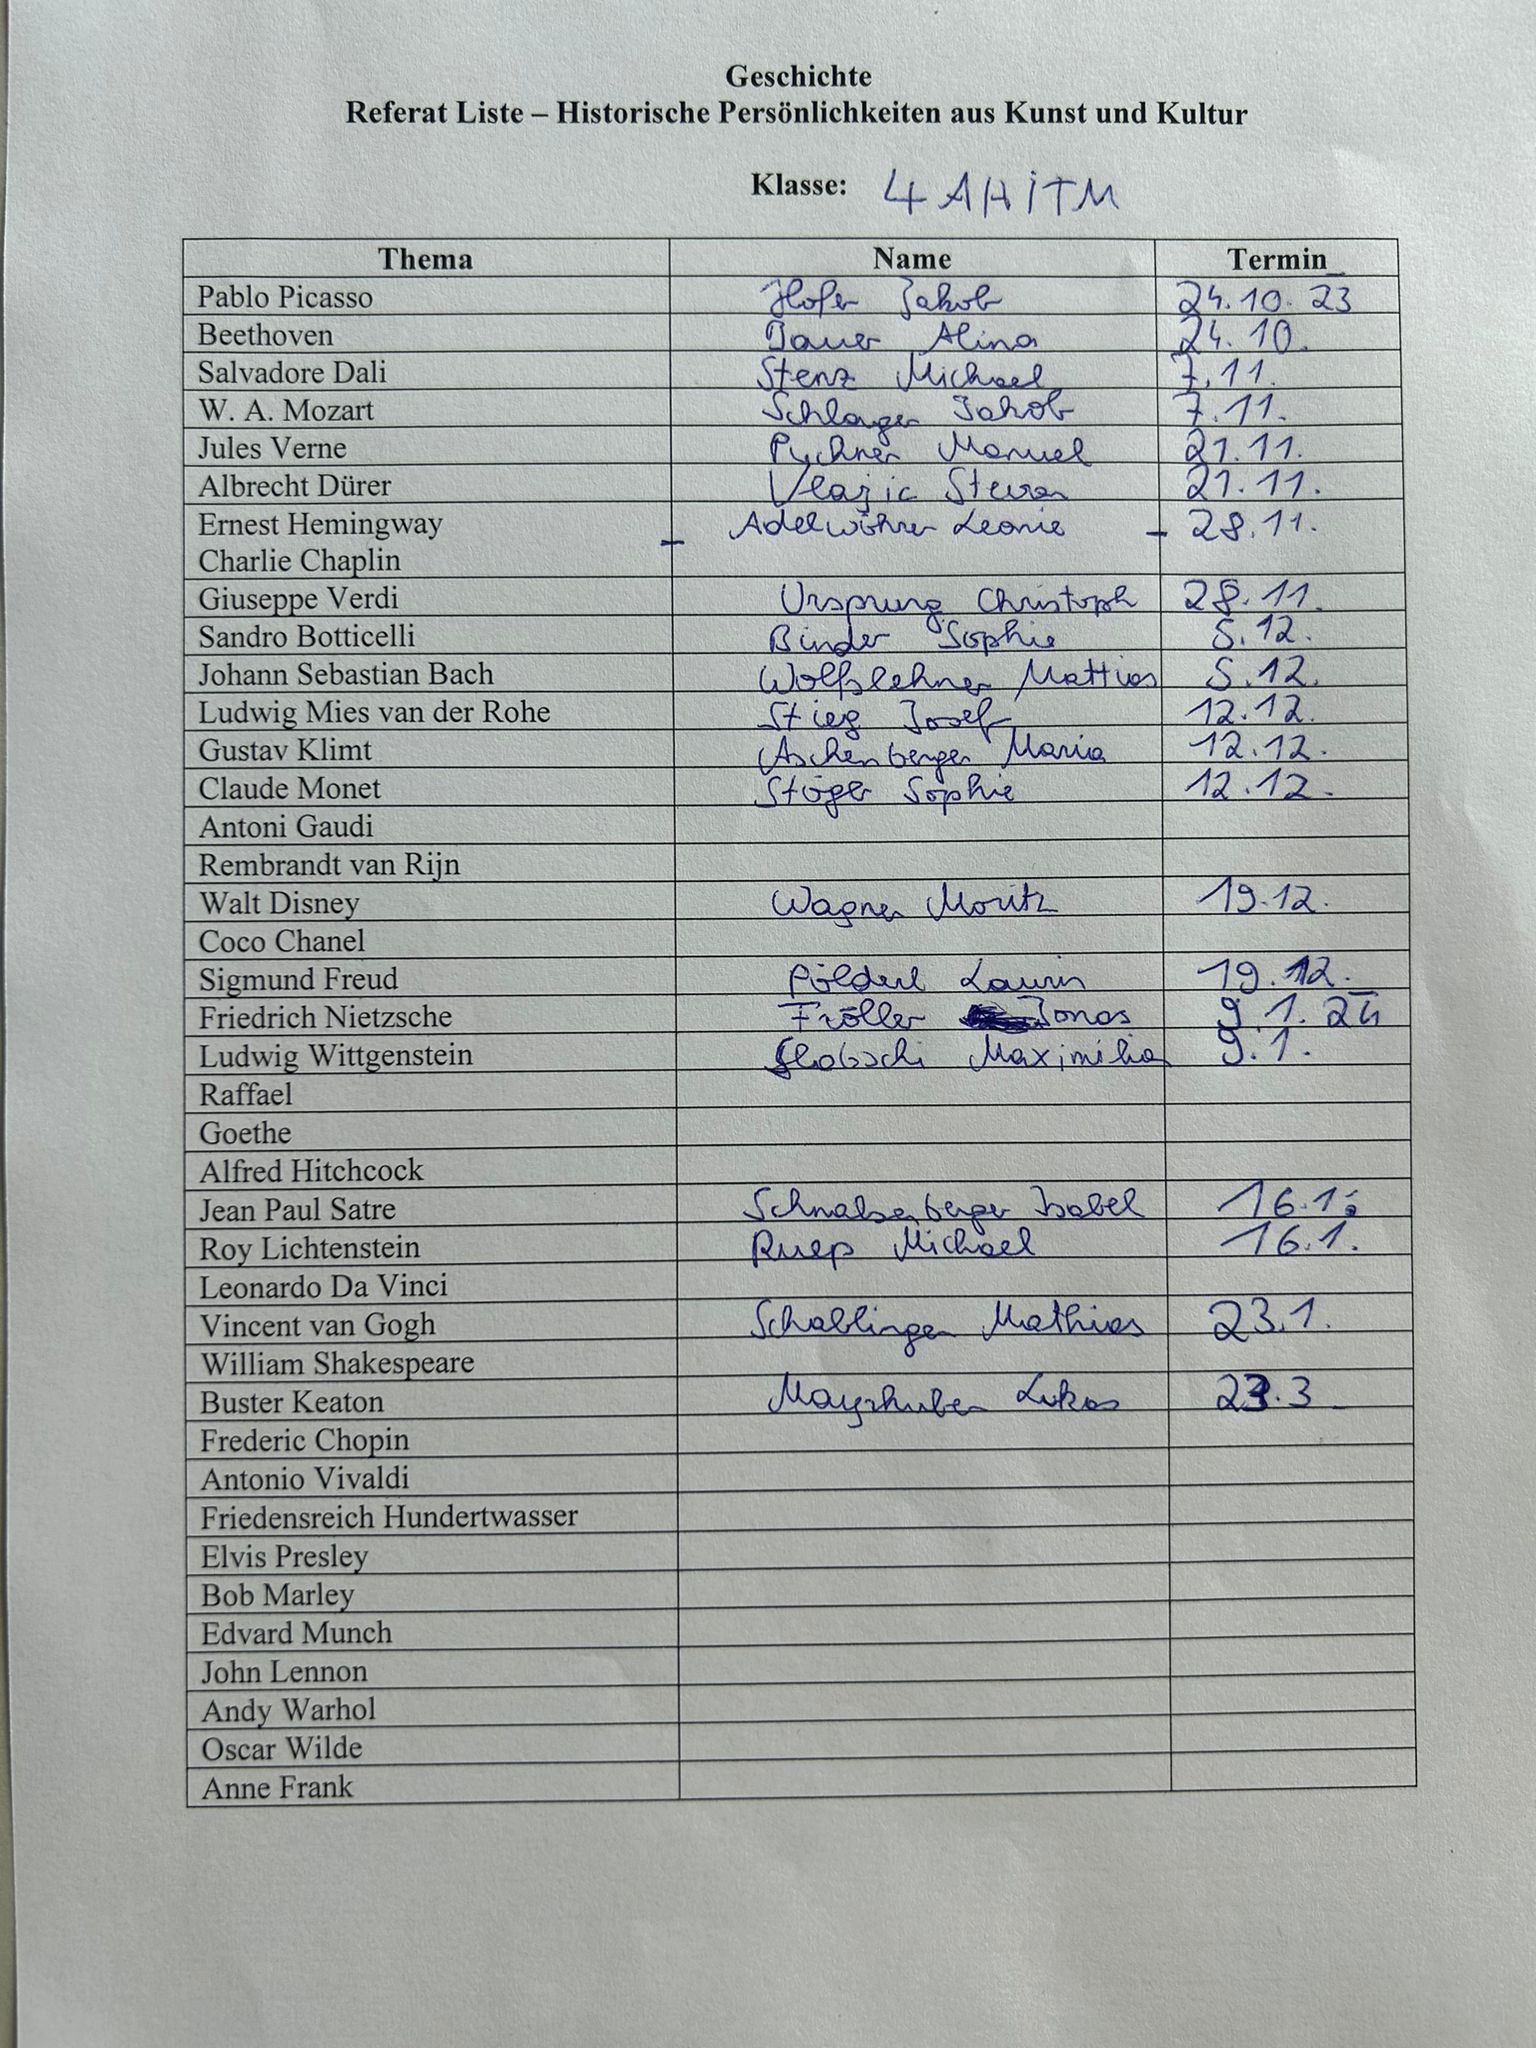 Geschichte
Referat Liste – Historische Persönlichkeiten aus Kunst und Kultur
Klasse: 4AHiTM
Thema Name Termin
Pablo Picasso Hofer Jakob 24.10.23
Beethoven Bauer Alina 24.10.
Salvadore Dali Stenz Michael 7.11.
W. A. Mozart Schlager Jakob 7.11.
Jules Verne Pychner Manuel 21.11.
Albrecht Dürer Vlajic Stevan 21.11.
Ernest Hemingway – Adelwöhrer Leonie – 28.11.
Charlie Chaplin
Giuseppe Verdi Ursprung Christoph 28.11.
Sandro Botticelli Binder Sophie 5.12.
Johann Sebastian Bach Wolfslehner Mattias 5.12.
Ludwig Mies van der Rohe Stieg Josef 12.12.
Gustav Klimt Aschenberger Maria 12.12.
Claude Monet Stöger Sophie 12.12.
Antoni Gaudi
Rembrandt van Rijn
Walt Disney Wagner Moritz 19.12.
Coco Chanel
Sigmund Freud Pölderl Laurin 19.12.
Friedrich Nietzsche Fröller Jonas 9.1.24
Ludwig Wittgenstein Maximilian 9.1.
Raffael
Goethe
Alfred Hitchcock
Jean Paul Satre Schnabelberger Isabel 16.1.
Roy Lichtenstein Ruep Michael 16.1.
Leonardo Da Vinci
Vincent van Gogh Schablinger Mathias 23.1.
William Shakespeare
Buster Keaton Mayrhuber Lukas
Frederic Chopin
Antonio Vivaldi
Friedensreich Hundertwasser
Elvis Presley
Bob Marley
Edvard Munch
John Lennon
Andy Warhol
Oscar Wilde
Anne Frank